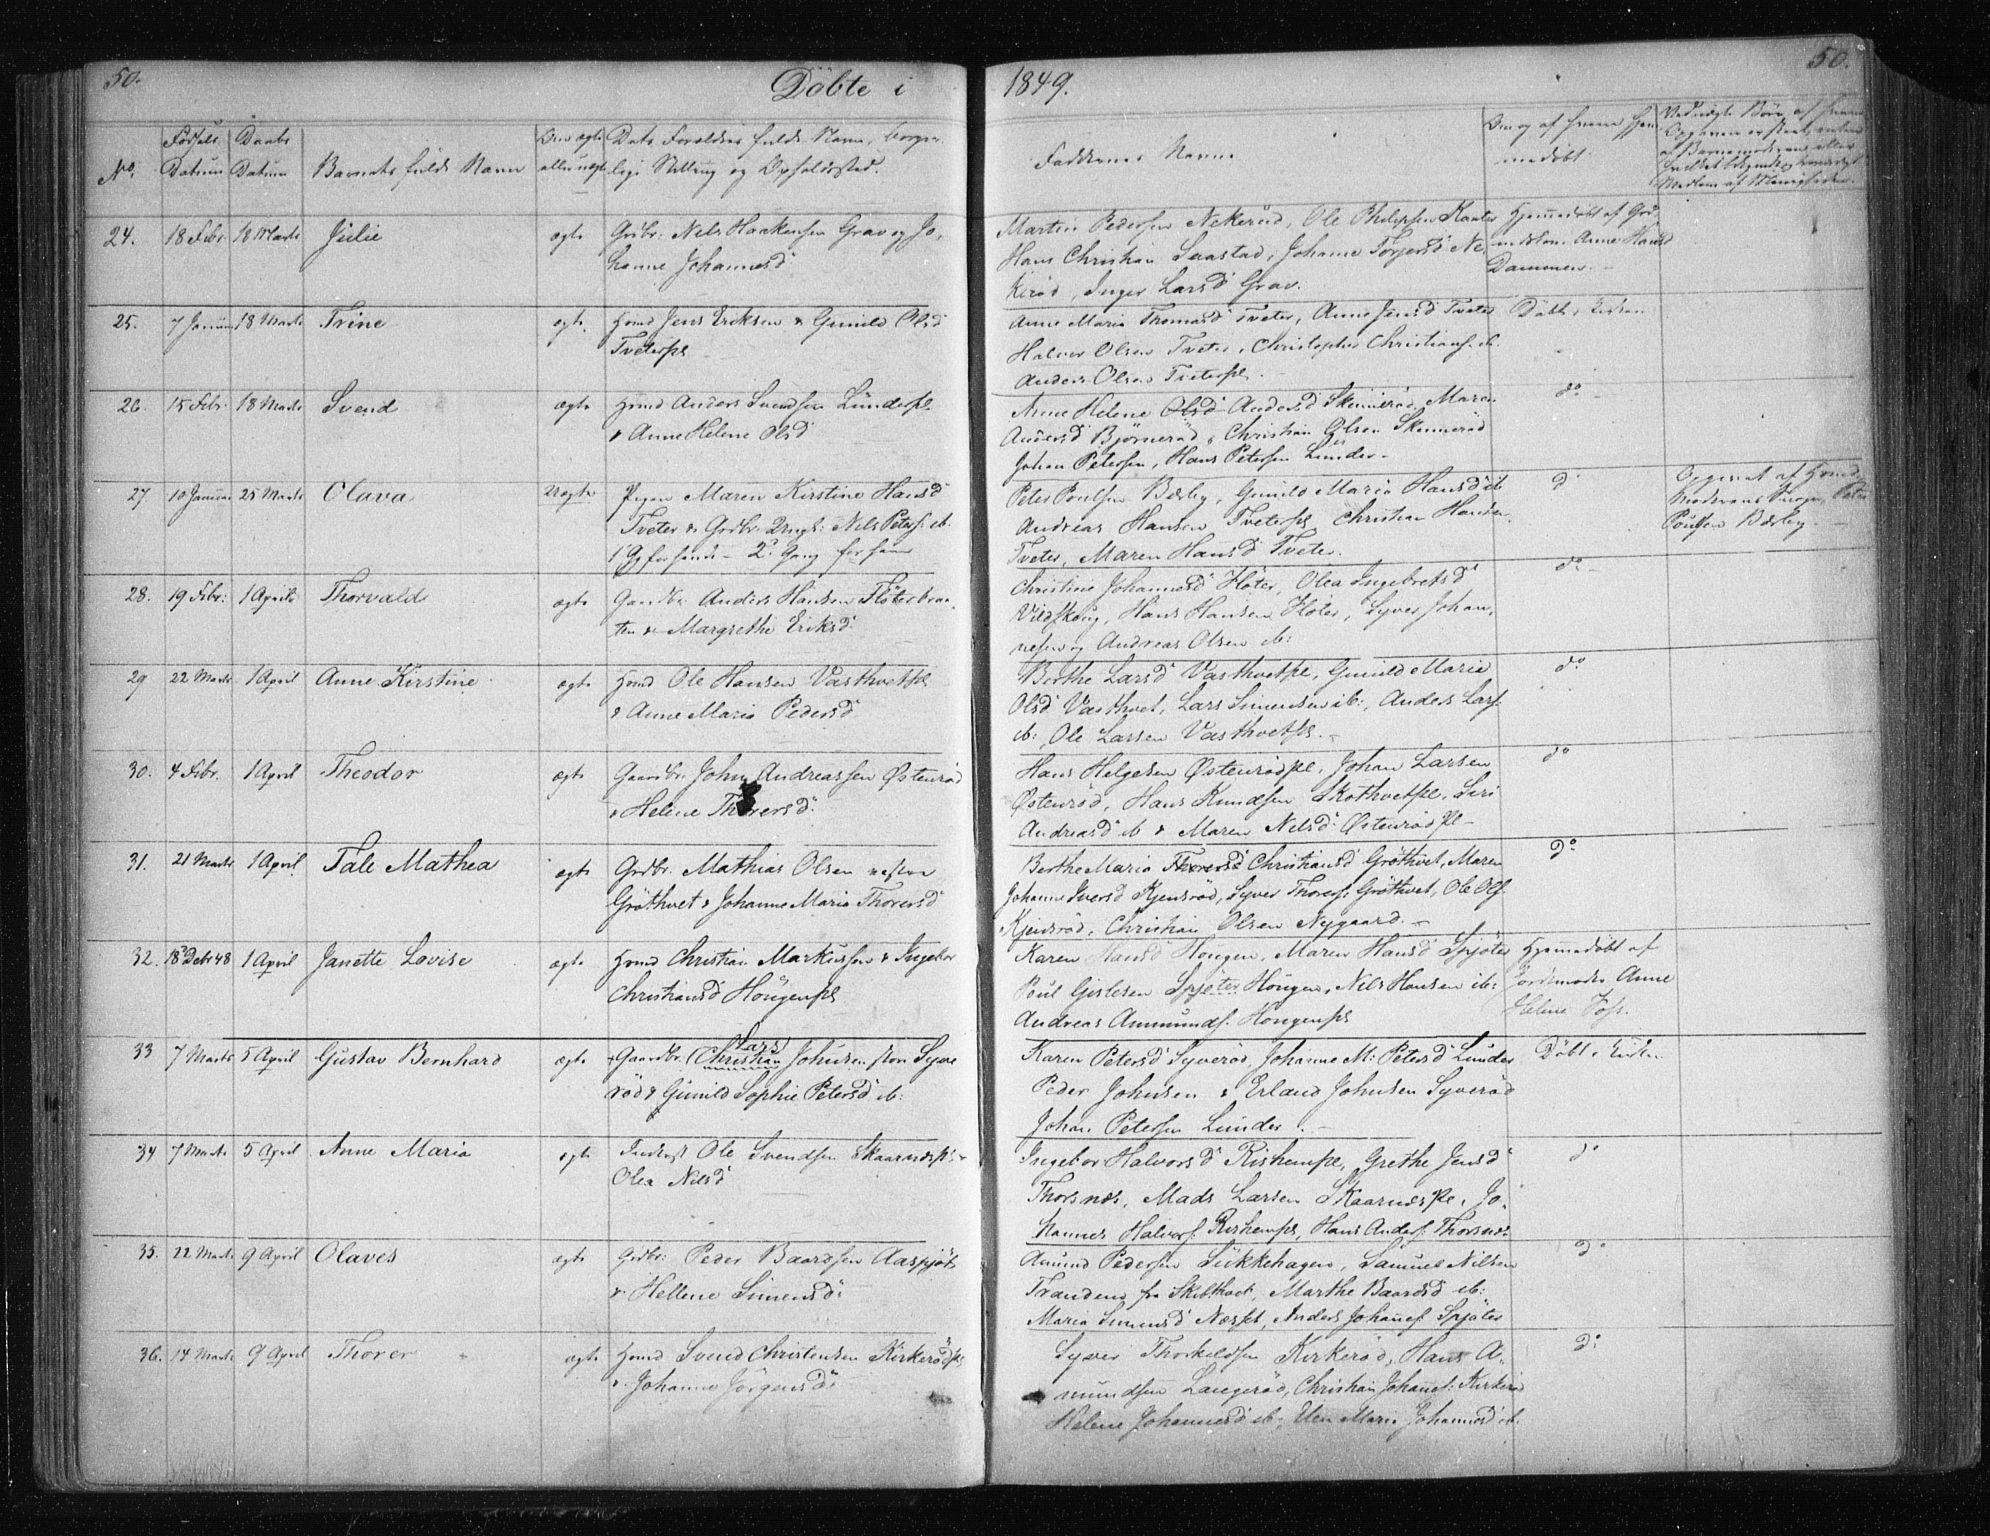 50.
Döbte i
1849.
50.
No.
Fødsels Datum
Daabs Datum
Barnets fulde Navn
Om ægte eller uægte
Dets Forældres fulde Navn, borger-
lige Stilling og Opholdssted.
Faddernes Navne
Om og af hvem hjem-
medøbt.
24. 18 Febr. 18 Marts Julie ægte Grdbr. Nels Haakensen Grav og Jo,
hanne Johannesd
Martin Pedersen Nekeröd, Ole Philipsen
Hans Christian Saastad, Johanne Torjersd Ne-
keröd, Inger Larsd Grav.
Hjemmedøbt af
Anne Hansd
Dammen. -
25. 7 Januar 18 Marts Trine ægte Hmd Jens Eriksen & Gunild Olsd
Tveterpl
Anne Maria Thomasd Tveter, Anne Jensd Tveter
Halvor Olsen Tveter, Christopher Christians. ib.
Anders Olsen Tveterpl. -
Döbt i Kirken
26. 15 Febr. 18 Marts Svend ægte Hmd Anders Svendsen Lunderpl.
& Anne Helene Olsd
Anne Helene Olsd Andersd Skenneröd, Maren
Andersd Björneröd, Christian Olsen Skenneröd
Johan Petersen, Hans Petersen Lunder -
do -
27. 10 Januar 25 Marts Olava Uægte Pigen Maren Kirstine Hansd
Tveter & Grdbr. Nils Peters. ib.
1 Gg for hende - 2d Gang for ham
Peter Poulsen Bæsby, Gunild Maria Hansd ib
Andreas Hansen Tveterpl, Christian Hansen
Tveter, Maren Hansd Tveter.
do
Opgivet af Hmd
Peter
Poulsen Bæsby. -
28. 19 Febr: 1 April Thorvald ægte Gaardbr. Anders Hansen Flöterbraa-
ten & Margrethe Eriksd
Christine Johannesd Flöter, Olea Ingebretsd
Vildskoug, Hans Hansen Flöter, Syver Johan,
nesen og Andreas Olsen ib:
do -
29 22 Marts 1 April Anne Kirstine ægte Hmd Ole Hansen Vasthvetpl
& Anne Maria Pedersd
Berthe Larsd Vasthvetpl, Gunild Maria
Olsd Vasthvet, Lars Simensen ib:, Anders Lars.
ib: Ole Larsen Vasthvetpl. -
do
30. 4 Febr. 1 April Theodor ægte Gaardbr. John Andreassen Østenröd
& Helene Thorersd
Hans Helgesen Østenrödpl, Johan Larsen
Østenröd, Hans Knudsen Skothvetpl. Siri
Andreasd ib & Maren Nelsd Østenrödpl -
do
31. 21 Marts 1 April Tale Mathea ægte Grdbr. Mathias Olsen nestre
Gröthvet & Johanne Maria Thorersd
Berthe Maria Thorersd Christiansd Gröthvet, Maren
Johanne Iversd Kjensröd, Syver Thorers. Gröthvet, Ole Ols.
Kjensröd, Christian Olsen Nygaard. -
do
32. 18 Debr 48 1 April Janette Lovise ægte Hmd Christian Markussen & Ingebor
Christiansd Höugenpl
Karen Hansd Hougen, Maren Hansd Spjöter
Poul Gislesen Spjöter Hougen, Nils Hansen ib:
Andreas Ammunds. Hougenpl
Hjemmedöbt af
Jordemoder Anne
Helene Foss.
33 7 Marts 5 April Gustav Bernhard ægte Gaardbr. (Christian Lars) Johnsen store Syve
röd & Gunild Sophie Petersd ib:
Karen Petersd Syveröd, Johanne M: Petersd Lunder
Peder Johnsen & Erland Johnsen Syveröd
Johan Petersen Lunder. -
Döbt i Kirken
34 7 Marts 5 April Anne Maria ægte Ole Svendsen Skaarnæspl. &
Olea Nilsd
Ingebor Halvorsd Riskempl, Grethe Jensd
Thorsnæs, Mads Larsen Skaarnæspl. Jo,
hannes Halvors. Riskempl, Hans Anders. Thorsnæs
do
35. 22 Marts 9 April Olaves ægte Grdbr: Peder Baardsen Aaspjöt
& Hellene Simensd
Amund Pedersen Sükkehagen, Samuel Nilsen
Tranden fra Skibthvet, Marthe Baardsd ib:
Maria Simensd Næspl, Anders Johans. Spjöter
do
36. 14 Marts 9 April Thorer ægte Hmd Svend Christensen Kirkerödpl
& Johanne Jörgensd
Syver Thorkeldsen Kirkeröd, Hans A-
mundsen Langeröd, Christian Johans. Kirkeröd
Helene Johannesd ib. Elen Maria Johannesd ib.
do